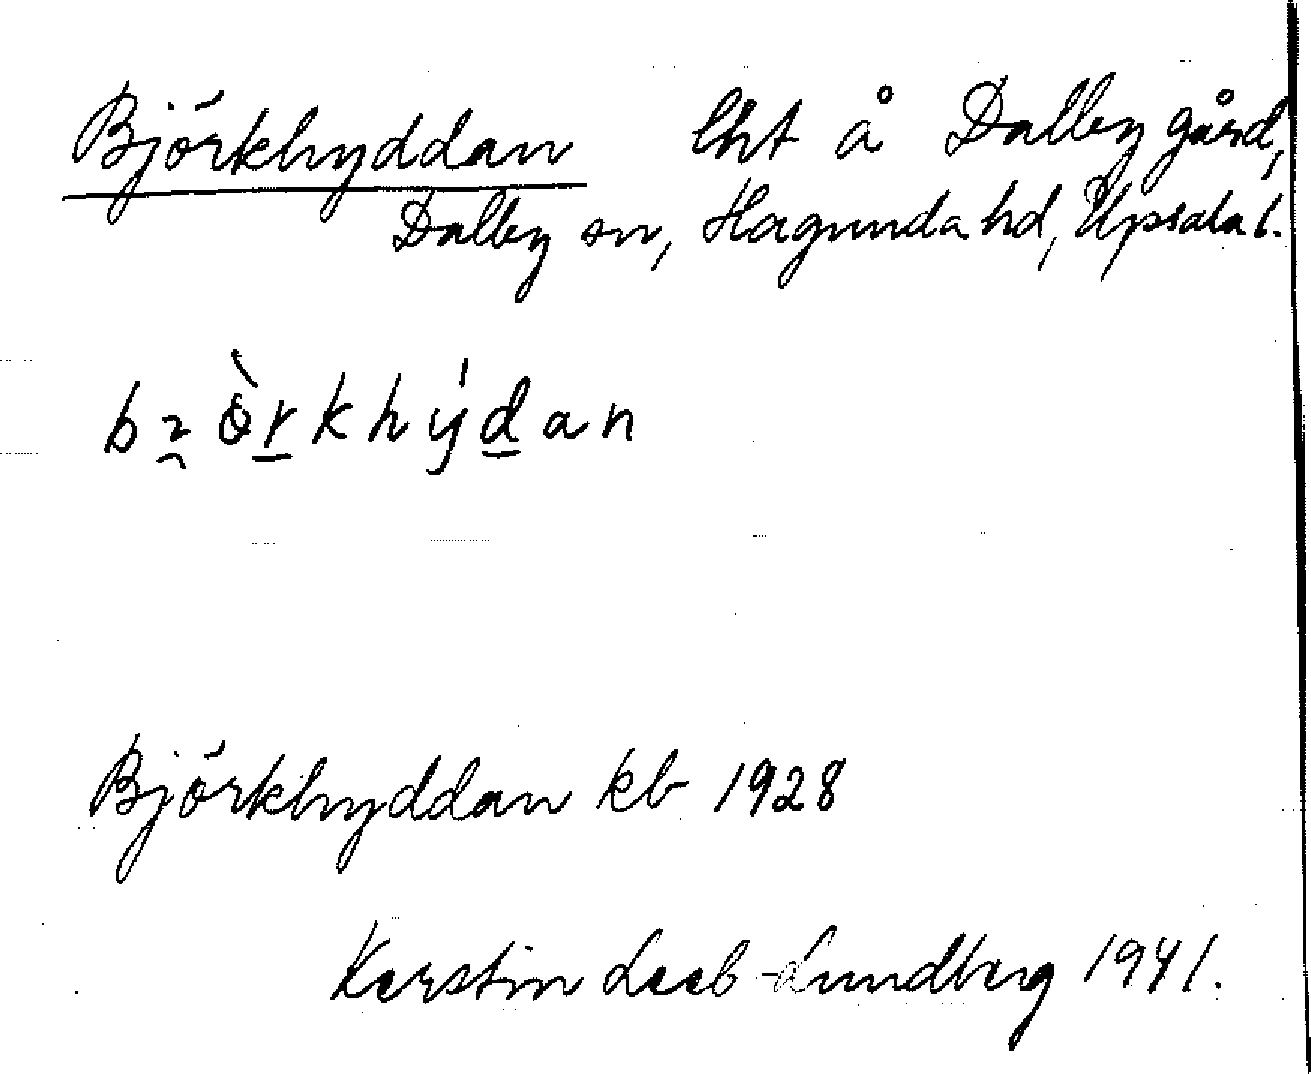 Björkhyddan lht å Dalby gård,
Dalby sn, Hagunda hd, Upsala l.
Björkhyddan kb 1928
Kerstin Leeb-Lundberg 1941.